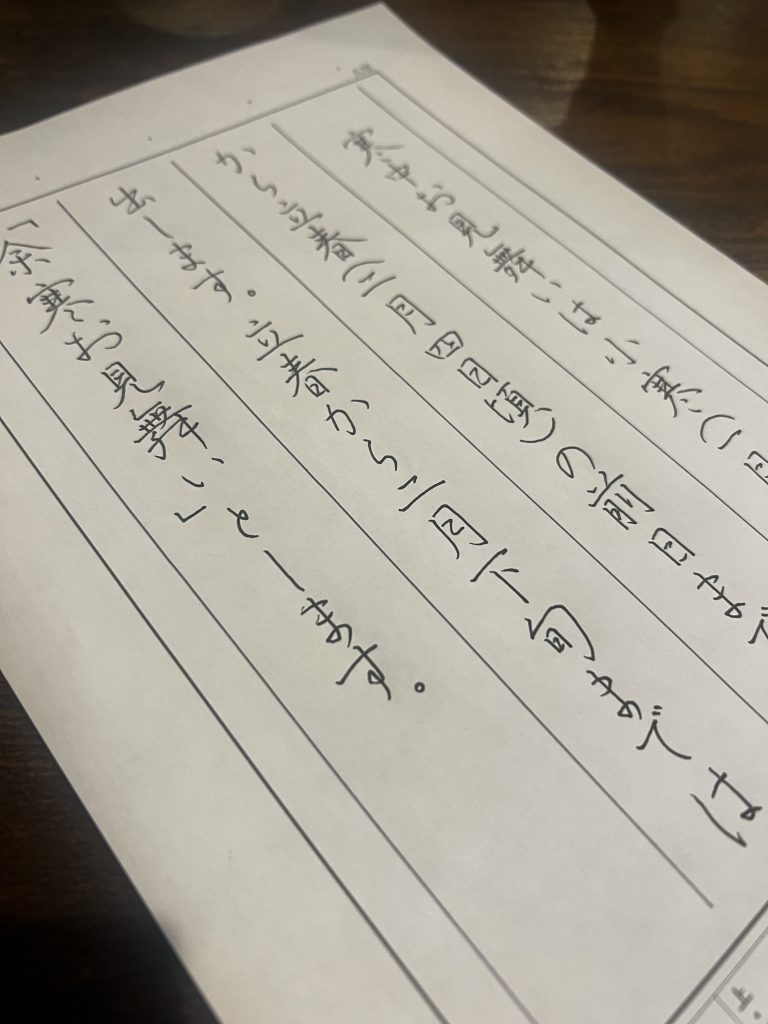 寒中お見舞いは小寒(一月
から立春(二月四日頃)の前日まで
出します。立春から二月下旬までは
「余寒お見舞い」とします。
上.